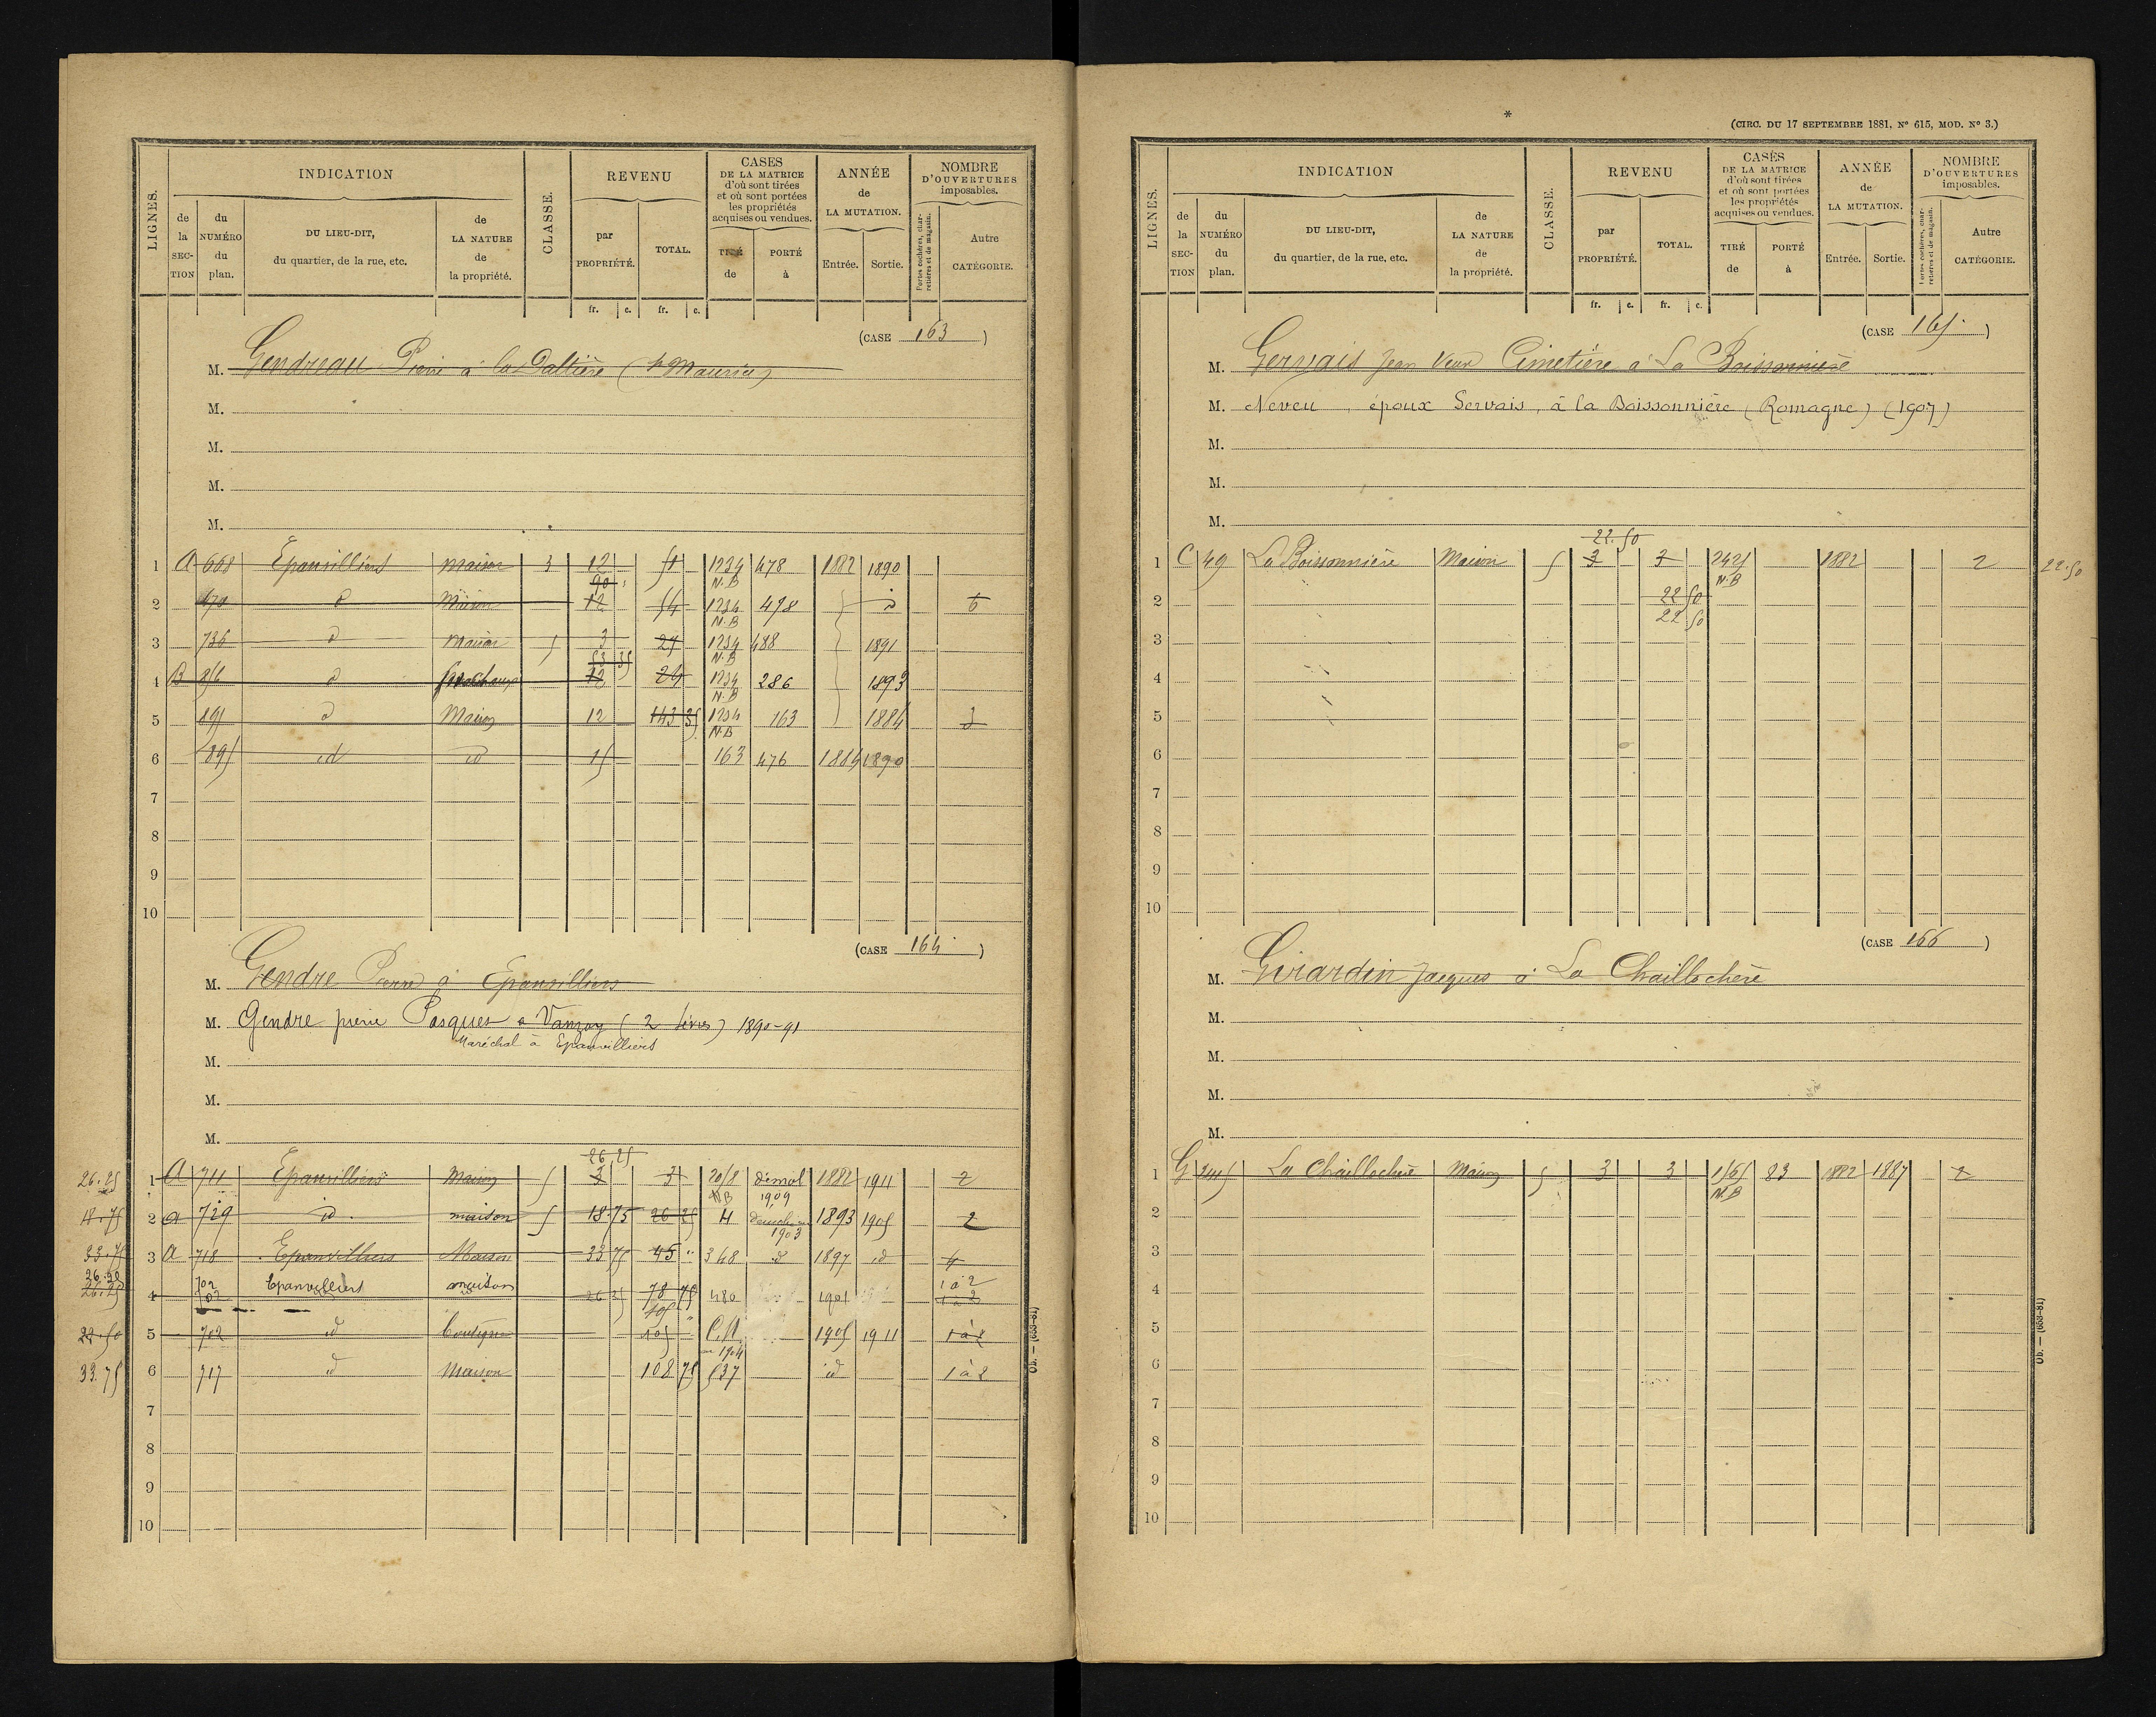 LIGNES.
INDICATION
de la SECTION
du NUMÉRO du plan.
DU LIEU-DIT, du quartier, de la rue, etc.
de LA NATURE de la propriété.
CLASSE.
REVENU
par PROPRIÉTÉ.
TOTAL.
fr. c. fr. c.
CASES DE LA MATRICE d'où sont tirées et où sont portées les propriétés acquises ou vendues.
TIRÉ de
PORTÉ à
ANNÉE de LA MUTATION.
Entrée. Sortie.
NOMBRE D'OUVERTURES imposables.
Portes cochères, charretières et de magasin.
Autre CATÉGORIE.
(CASE 163)
M. Gendreau Pierre à la
M.
M.
M.
M.
1 A 668 Epanvilliers maison 3 12 51 1234 N.B 478 1882 1890
90
2 670 d Maison 12 54 1234 N.B 478 d 6
3 736 d Maison 5 3 29 1234 N.B 488 1891
53 35
4 B 856 d 12 24 1234 N.B 286 1893
5 891 d Maison 12 143 35 1234 N.B 163 1884 3
6 895 id id 15 163 476 1884 1890
7
8
9
10
(CASE 164)
M. Gendre Pierre à Epanvilliers
M. Gendre pierre Pasques a Vanzay (2 ) 1890-91
Maréchal à Epanvilliers
M.
M.
M.
26 25
26.25 1 A 711 Epanvilliers Maison 5 3 3 20/8 N.B démol 1909 1882 1911 2
18.75 2 a 729 id. maison 5 18 75 26 25 H 1903 1893 1905 2
33.75 3 a 718 Epanvilliers Maison 33 75 45 " 368 d 1897 id 4
26.25 4 702 Epanvilliers maison 26 25 78 75 480 1901 1 à 2
105
22.50 5 702 d 105 " C.N. en 1904 1905 1911 1 à 2
33.75 6 717 d Maison 108 75 537 id 1 à 2
7
8
9
10
Ob. — (653-81)
*
(CIRC. DU 17 SEPTEMBRE 1881, Nº 615, MOD. Nº 3.)
LIGNES.
INDICATION
de la SECTION
du NUMÉRO du plan.
DU LIEU-DIT, du quartier, de la rue, etc.
de LA NATURE de la propriété.
CLASSE.
REVENU
par PROPRIÉTÉ.
TOTAL.
fr. c. fr. c.
CASES DE LA MATRICE d'où sont tirées et où sont portées les propriétés acquises ou vendues.
TIRÉ de
PORTÉ à
ANNÉE de LA MUTATION.
Entrée. Sortie.
NOMBRE D'OUVERTURES imposables.
Portes cochères, charretières et de magasin.
Autre CATÉGORIE.
(CASE 165)
M. Gervais Jean Veuve Cimetière à La Boissonnière
M. Neveu, époux Servais, à la Boissonnière (Romagne) (1907)
M.
M.
M.
22.50
1 C 49 La Boissonnière Maison 5 3 3 2425 N.B 1882 2 22.50
2 22 50
22 50
3
4
5
6
7
8
9
10
(CASE 166)
M. Girardin Jacques à La Chaillochère
M.
M.
M.
M.
1 G La Chaillochère Maison 5 3 3 N.B 83 1882 1887 2
2
3
4
5
6
7
8
9
10
Ob. — (653-81)